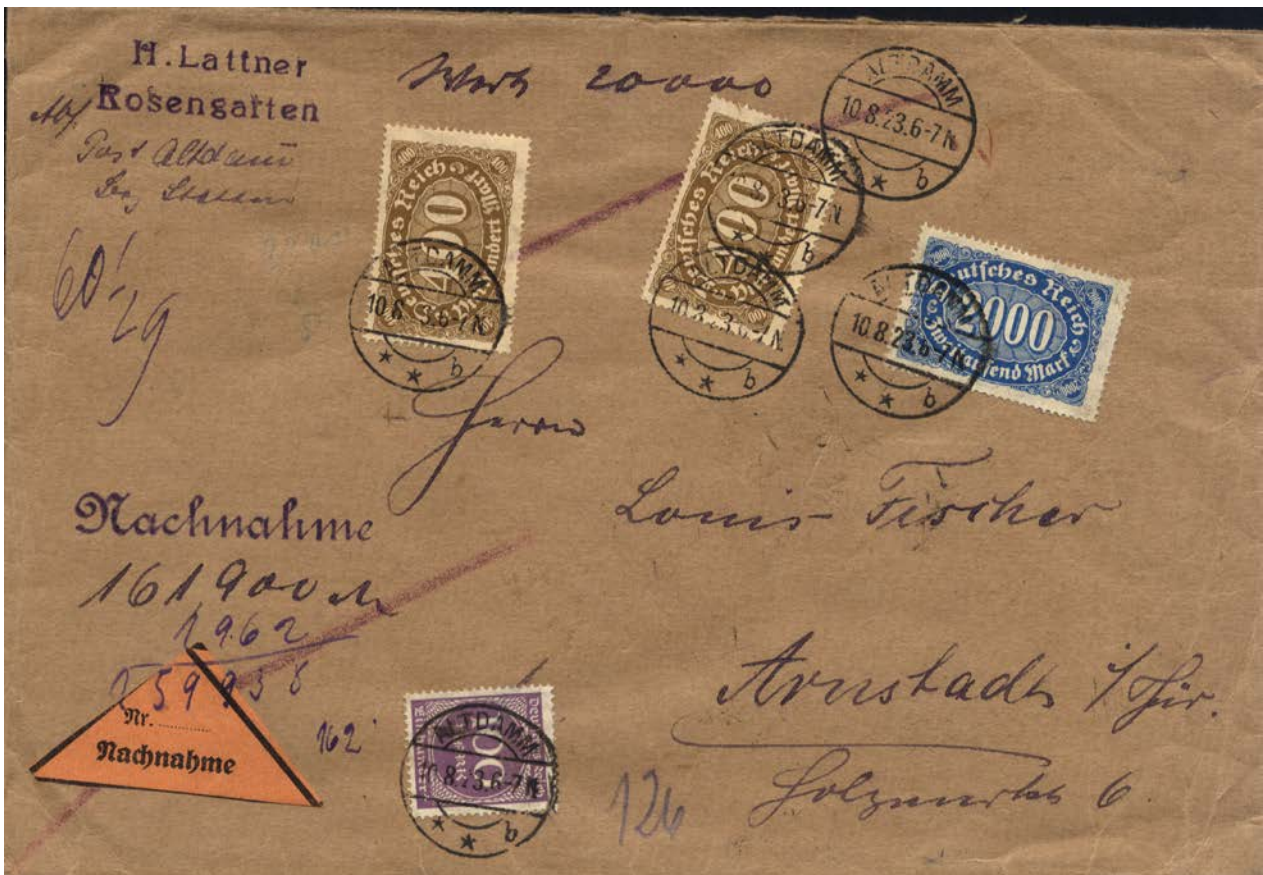 H. Lattner
Rosengarten
Abs.
Post Altdamm
Bez. Stettin
Wert 20000
ALTDAMM
10.8.23.6-7N.
* * b
400 400
Deutsches Reich
400
Vierhundert Mark
ALTDAMM
10.8.23.6-7N.
* * b
400
Deutsches Reich
400
Vierhundert Mark
ALTDAMM
6-7N.
* * b
ALTDAMM
10.8.23.6-7N.
* * b
Deutsches Reich
2000
Zweitausend Mark
ALTDAMM
10.8.23.6-7N.
* * b
Herrn
Louis Fischer
Nachnahme
161900 M
1962
Nr.
Nachnahme
162
ALTDAMM
10.8.23.6-7N.
* * b
126
Arnstadt i/Thür.
Holzmarkt 6.